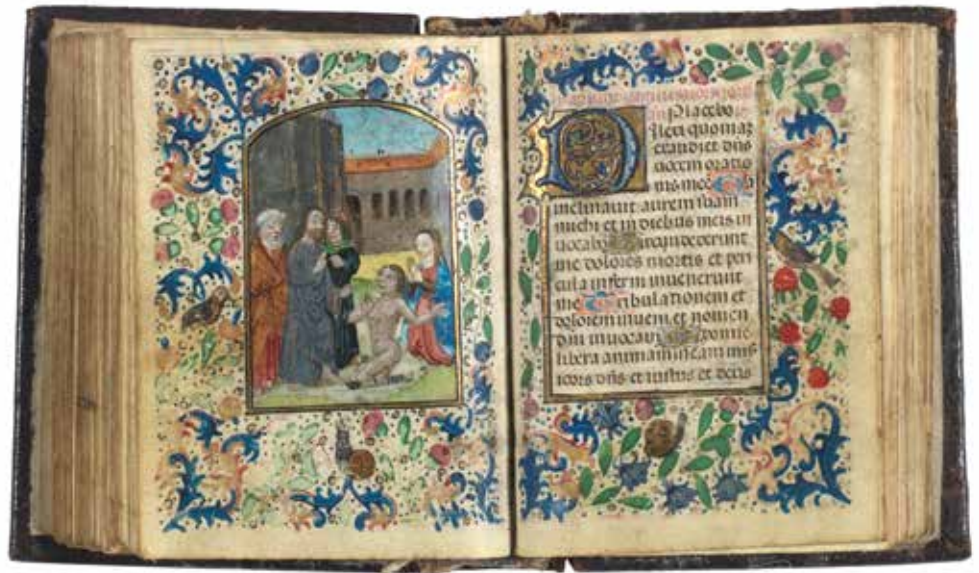 Placebo
Dilexi quoniaz
exaudiet dns
vocem oratio
nis mee Quia
inclinavit aurem suam
michi et in diebus meis in
vocabo Circundederunt
me dolores mortis et peri
cula inferni invenerunt
me Tribulationem et
dolorem inveni et nomen
dni invocavi O domine
libera animam meam mis
icors dns et iustus et deus